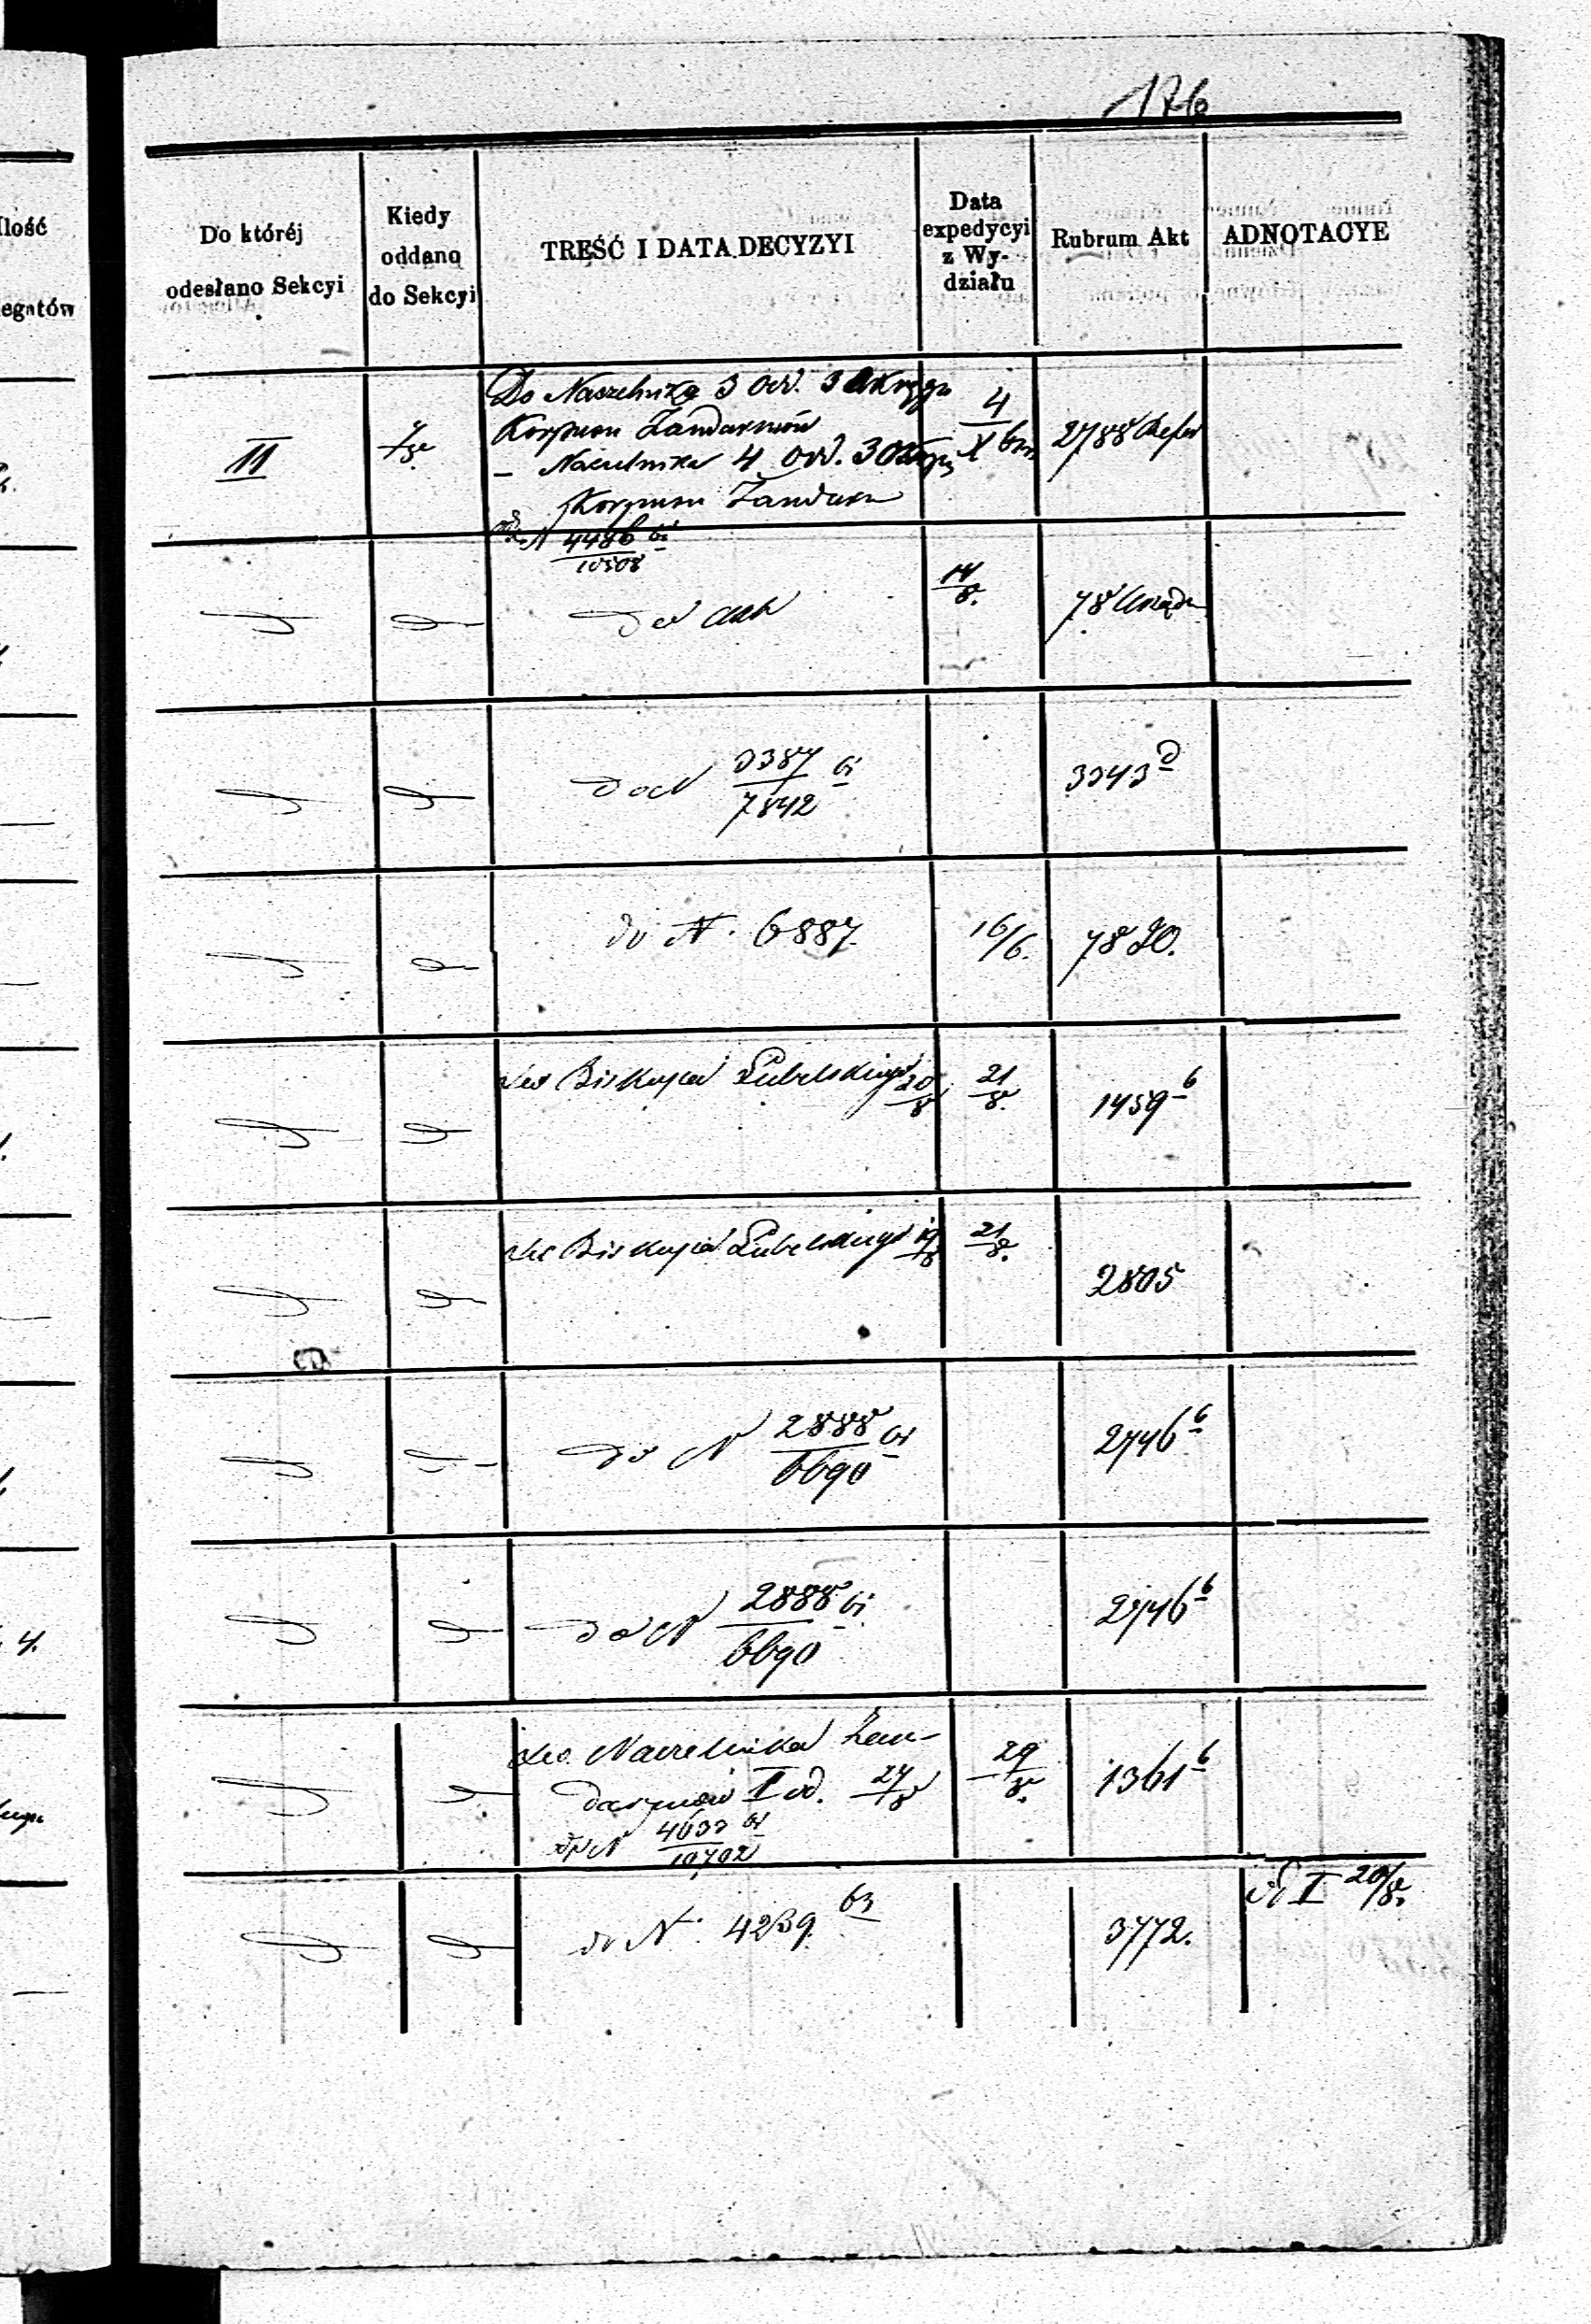 176
Ilość
egatów
Do któréj
odesłano Sekcyi
Kiedy
oddano
do Sekcyi
TREŚĆ I DATA DECYZYI
Data
expedycyi
z Wy-
działu
Rubrum Akt
ADNOTACYE
II
Do Naczelnika 3 Od. 3 Okręgu
Korpusu Żandarmów
– Naczelnika 4 Od. 3 Okręgu
Korpusu Żandarm
4
2788
do N 4486
10508
do akt
14/8.
78
do N 3387
7842
3343
do N. 6887.
16/6.
7820.
do Biskupa Lubelskiego 20/8
21/8.
1459 b
do Biskupa Lubelskiego 19/8
21/8.
2805
do N 2888
6690
2746 b
do N 2888
6690
2746 b
do Naczelnika Żan-
darmów II od. 27/8
29/8.
1361 b
do N 4633
10,792
do N. 4239
3772.
od I 20/8.